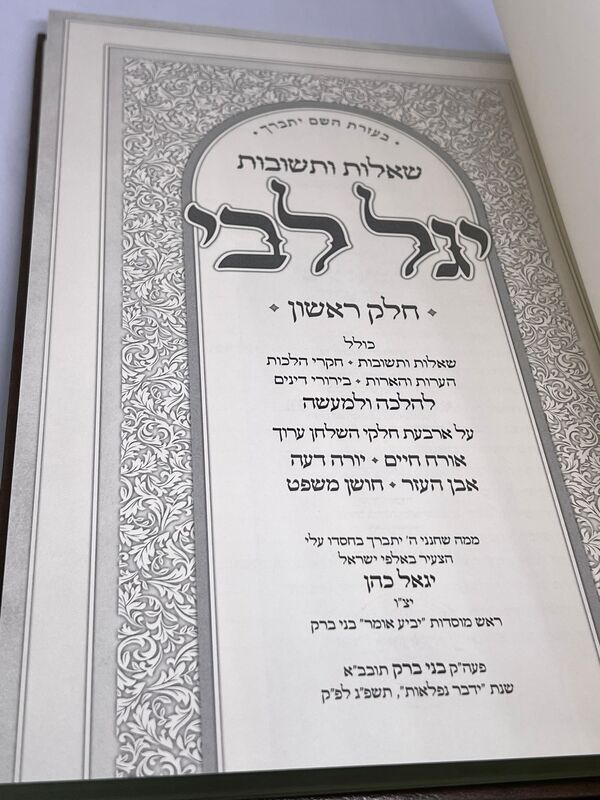 • בעזרת השם יתברך •
שאלות ותשובות
יגל לבי
• חלק ראשון •
כולל
שאלות ותשובות • חקרי הלכות
הערות והארות • בירורי דינים
להלכה ולמעשה
על ארבעת חלקי השלחן ערוך
אורח חיים • יורה דעה
אבן העזר • חושן משפט
ממה שחנני ה' יתברך בחסדו עלי
הצעיר באלפי ישראל
יגאל כהן
יצ"ו
ראש מוסדות "יביע אומר" בני ברק
פעה"ק בני ברק תובב"א
שנת "ידבר נפלאות", תשפ"ג לפ"ק